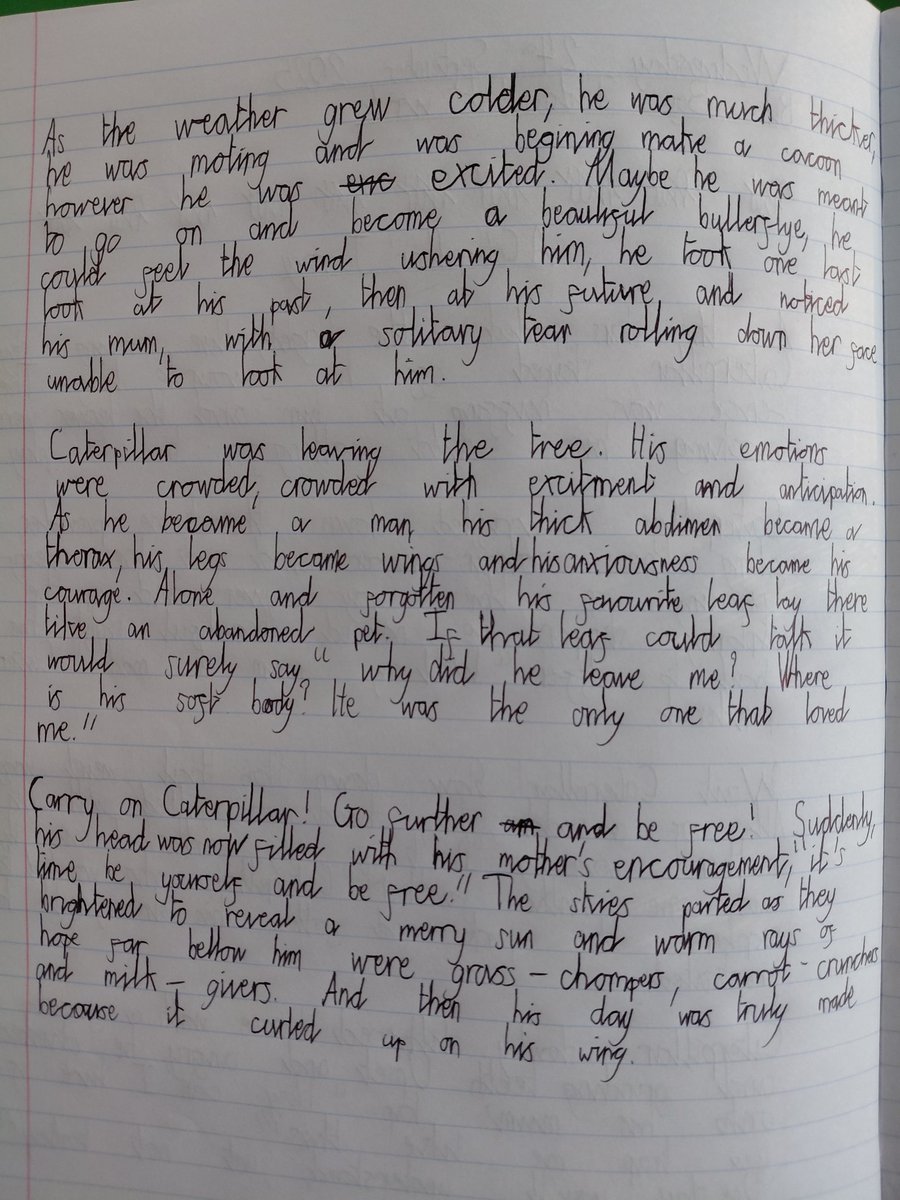 As the weather grew colder, he was much thicker,
he was moting and was begining make a cacoon
however he was excited. Maybe he was meant
to go on and become a beautiful butterflye, he
could feel the wind ushering him, he took one last
look at his past, then at his future, and noticed
his mum, with a solitary tear rolling down her face
unable to look at him.
Caterpillar was leaving the tree. His emotions
were crowded, crowded with excitment and anticipation.
As he became a man, his thick abdimen became a
thorax, his legs became wings and his anxiousness became his
courage. Alone and forgotten his favourite leaf lay there
like an abandoned pet. If that leaf could talk it
would surely say "why did he leave me? Where
is his soft body? He was the only one that loved
me."
Carry on Caterpillar! Go further and, and be free! Suddenly,
his head was now filled with his mother's encouragement, "it's
time be yourself and be free." The skies parted as they
brightened to reveal a merry sun and warm rays of
hope far bellow him were grass-chompers, carrot-crunchers
and milk-givers. And then his day was truly made
because it curled up on his wing.